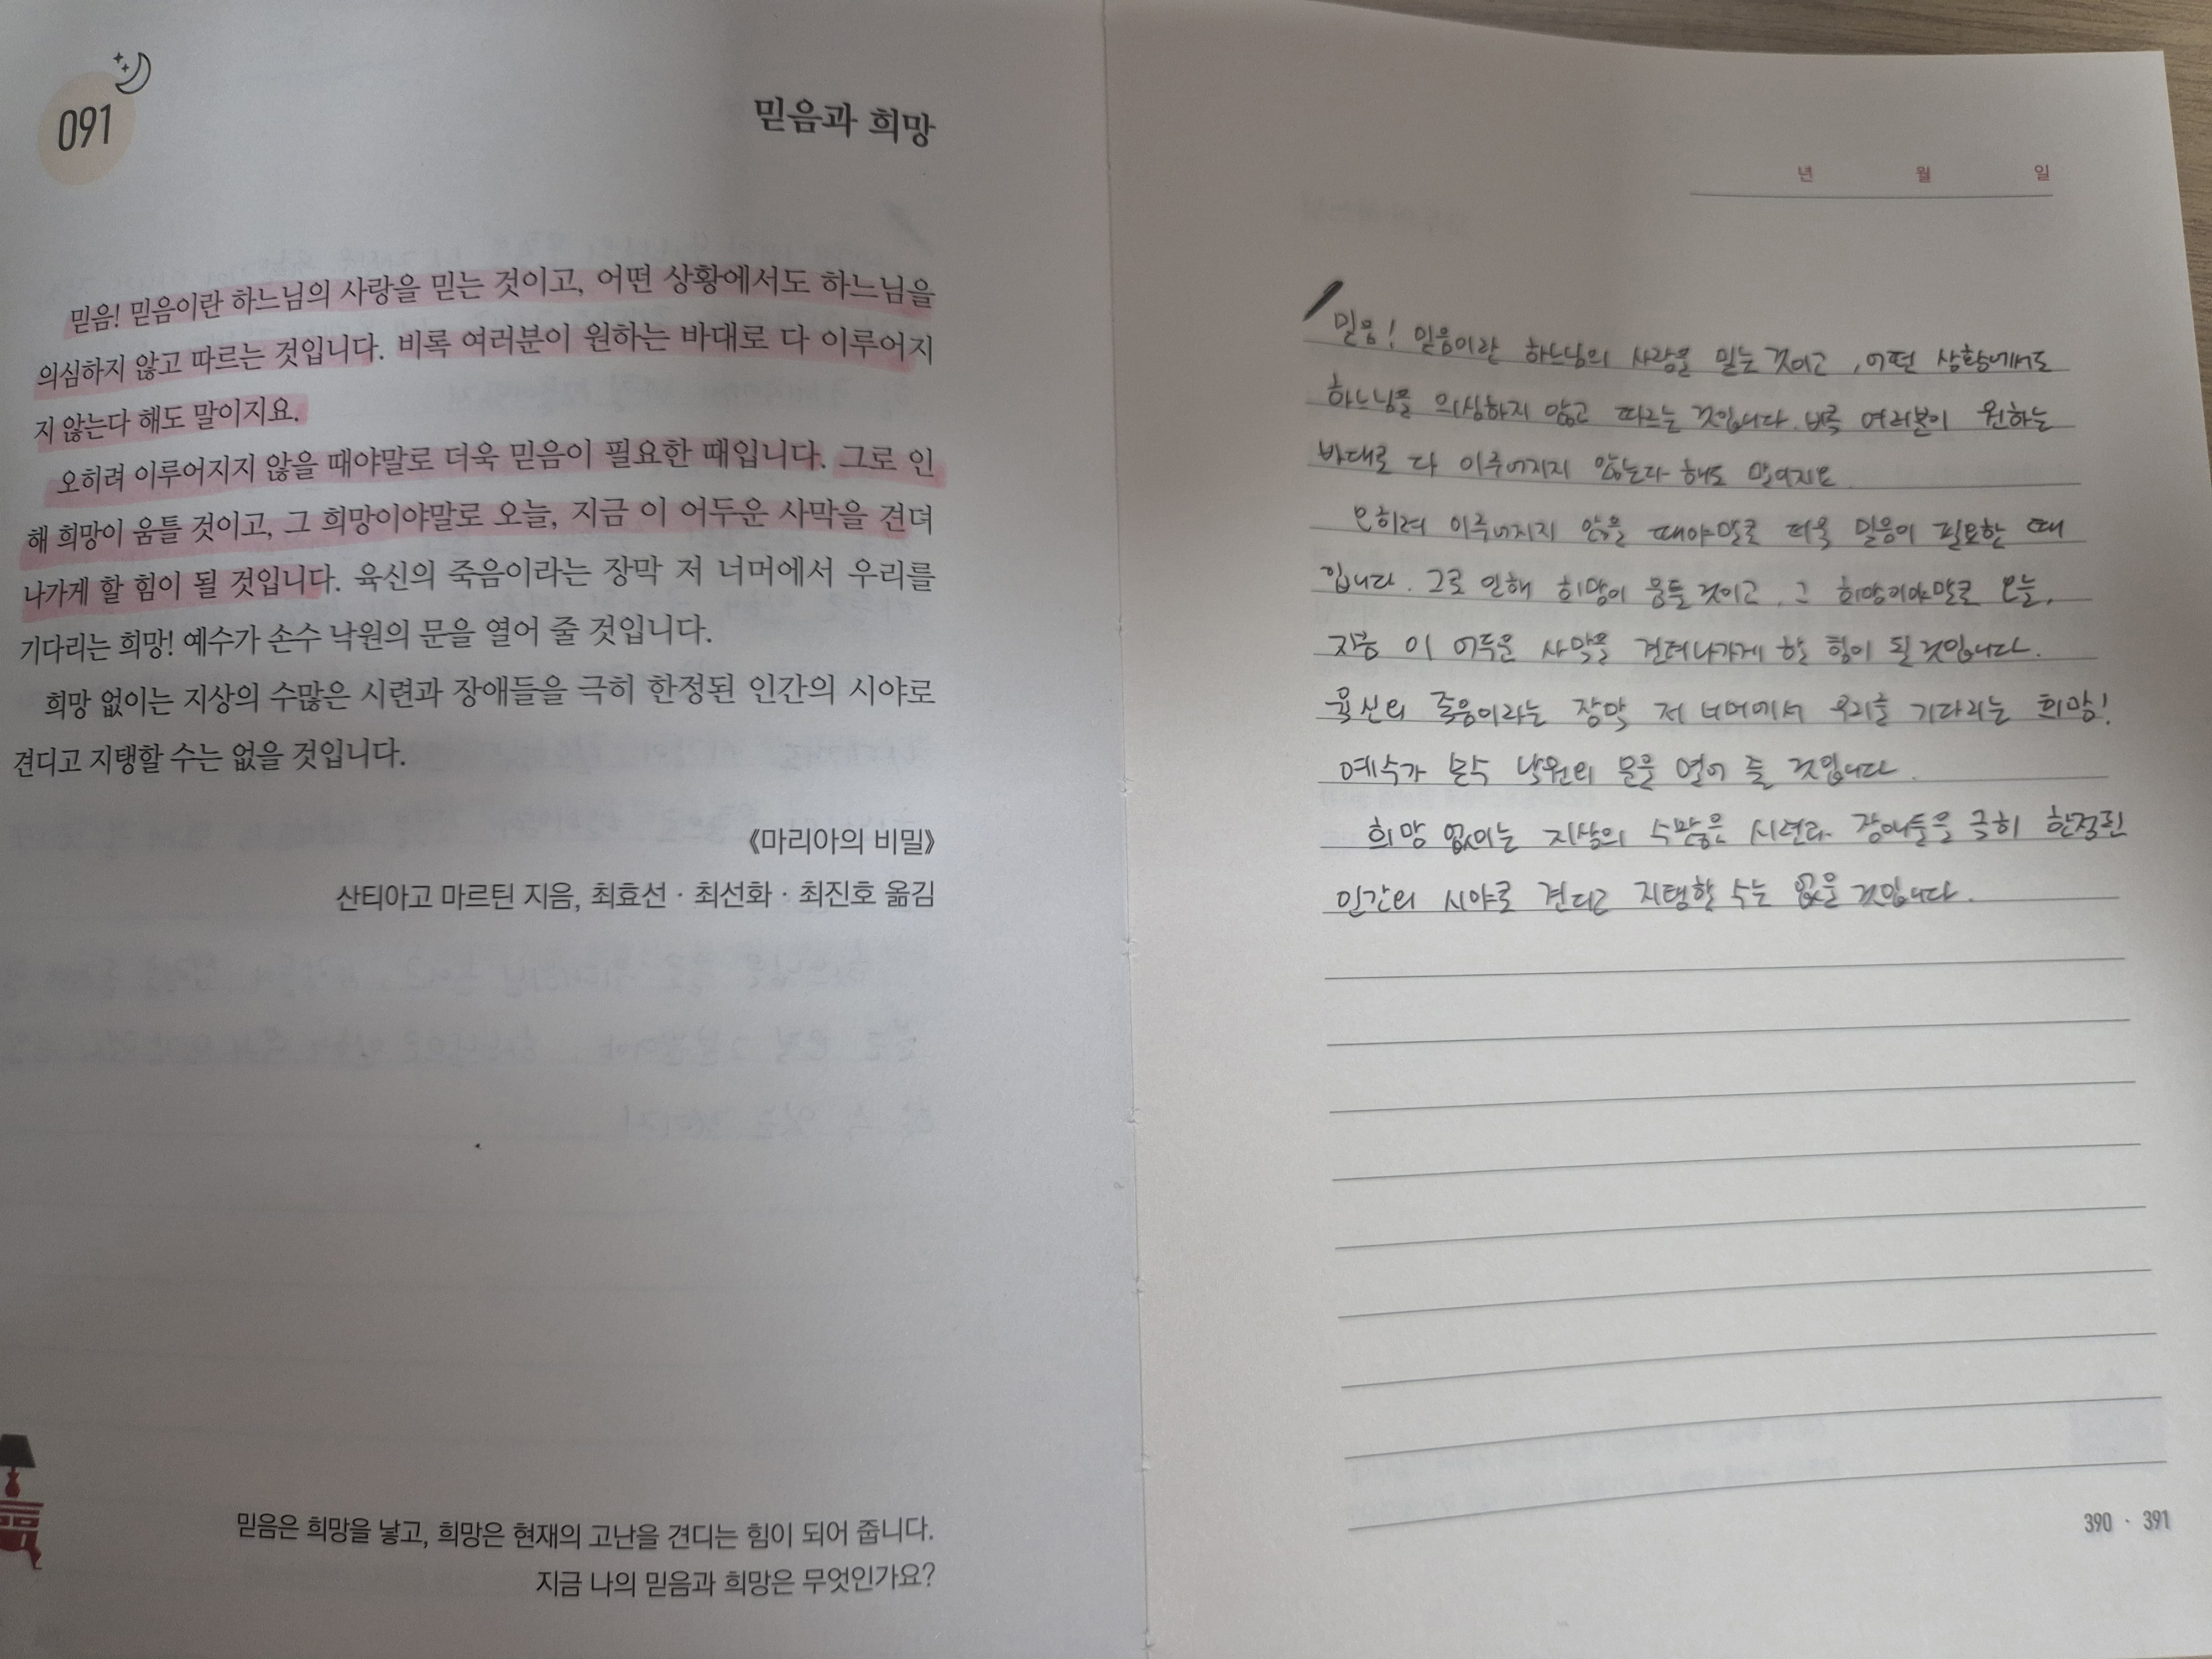 091
믿음과 희망
믿음! 믿음이란 하느님의 사랑을 믿는 것이고, 어떤 상황에서도 하느님을
의심하지 않고 따르는 것입니다. 비록 여러분이 원하는 바대로 다 이루어지
지 않는다 해도 말이지요.
오히려 이루어지지 않을 때야말로 더욱 믿음이 필요한 때입니다. 그로 인
해 희망이 움틀 것이고, 그 희망이야말로 오늘, 지금 이 어두운 사막을 견뎌
나가게 할 힘이 될 것입니다. 육신의 죽음이라는 장막 저 너머에서 우리를
기다리는 희망! 예수가 손수 낙원의 문을 열어 줄 것입니다.
희망 없이는 지상의 수많은 시련과 장애들을 극히 한정된 인간의 시야로
견디고 지탱할 수는 없을 것입니다.
《마리아의 비밀》
산티아고 마르틴 지음, 최효선 · 최선화 · 최진호 옮김
믿음은 희망을 낳고, 희망은 현재의 고난을 견디는 힘이 되어 줍니다.
지금 나의 믿음과 희망은 무엇인가요?
년 월 일
믿음! 믿음이란 하느님의 사랑을 믿는 것이고, 어떤 상황에서도
하느님을 의심하지 않고 따르는 것입니다. 비록 여러분이 원하는
바대로 다 이루어지지 않는다 해도 말이지요.
오히려 이루어지지 않을 때야말로 더욱 믿음이 필요한 때
입니다. 그로 인해 희망이 움틀 것이고, 그 희망이야말로 오늘,
지금 이 어두운 사막을 견뎌나가게 할 힘이 될 것입니다.
육신의 죽음이라는 장막 저 너머에서 우리를 기다리는 희망!
예수가 손수 낙원의 문을 열어 줄 것입니다.
희망 없이는 지상의 수많은 시련과 장애들을 극히 한정된
인간의 시야로 견디고 지탱할 수는 없을 것입니다.
390 · 391